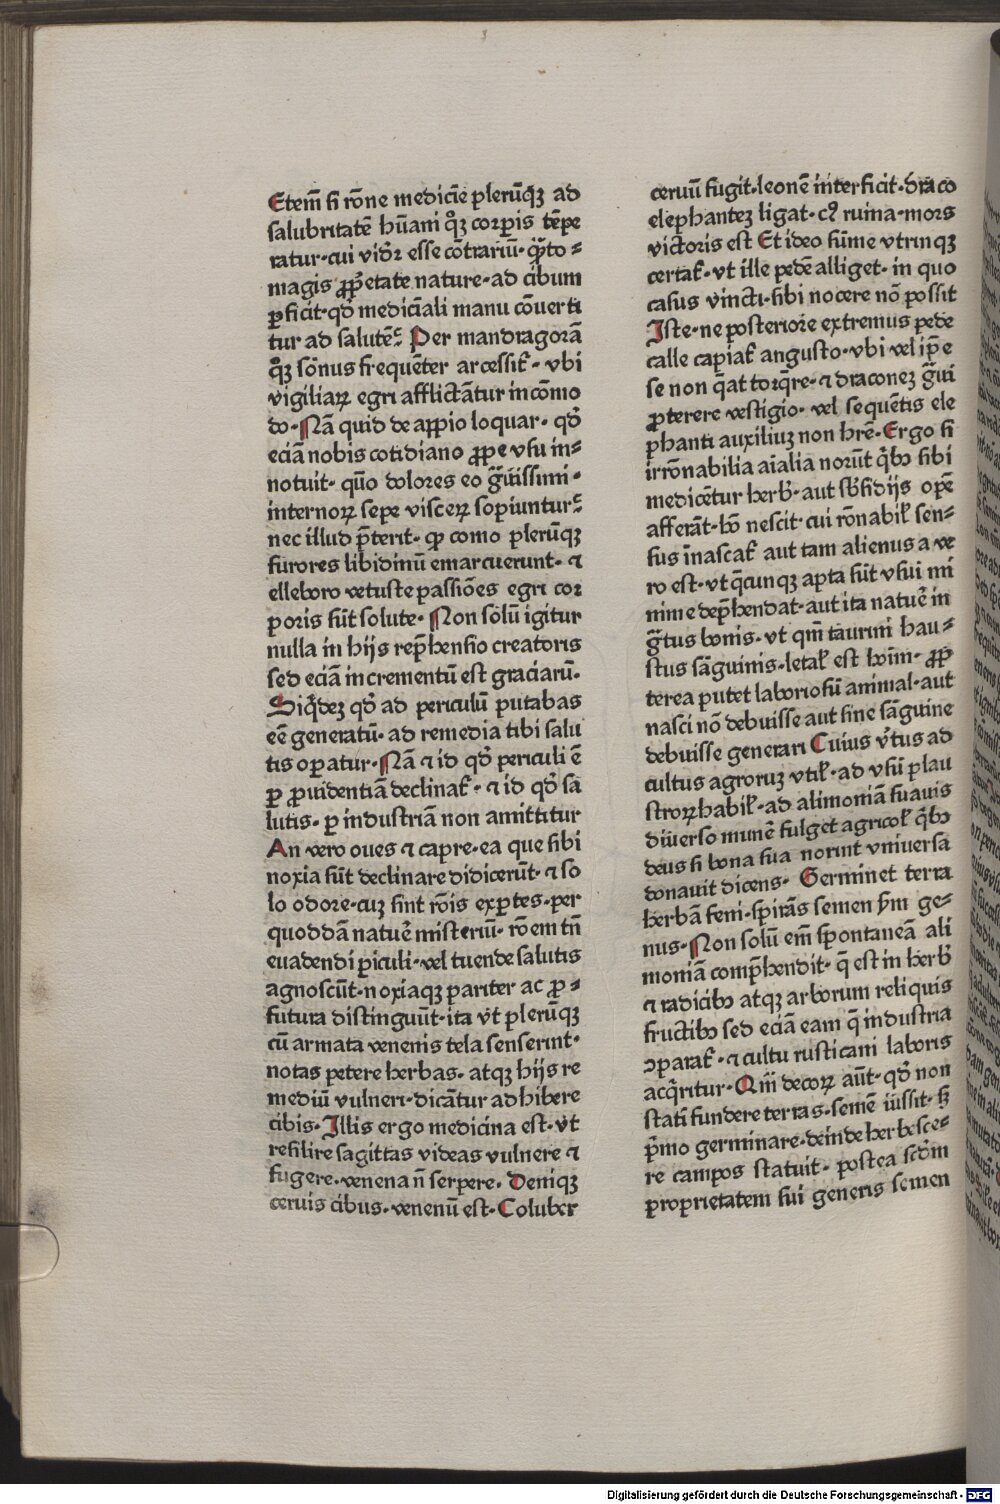 Etem̄ ſi rōne medicīe plerūqꝫ ad
ſalubritatē hūani qͦꝫ corꝑis tēpe
ratur·cui vidͦꝛ eſſe cōtrariū·qᷓto⸗
magis ꝓpͥetate nature·ad cibum
ꝑficit·qdͦ mediciali manu cōuerti
tur ad ſalutē Per mandragorā
qͦꝫ ſōnus frequēter arceſſit̄· vbi
vigiliaꝝ egri afflictātur incōmo
do·Nā quid de appio loquar· qdͦ
eciā nobis cotidiano ꝓpe vſu in⸗
notuit· quo dolores eo gͣuiſſimi·
internoꝝ ſepe viſceꝝ ſopiuntur
nec illud p̄terit· ꝙ como plerūqꝫ
furores libidinū emarcuerunt· ⁊
elleboro vetuſte paſſiōes egri coꝛ
poris ſūt ſolute· Non ſolū igitur
nulla in hijs rep̄henſio creatoris
ſed eciā incrementū eſt graciarū·
Siqͥdeꝫ qdͦ ad periculū putabas
eē generatū· ad remedia tibi ſalu
tis oꝑatur·Nā ⁊ id qdͦ periculi ē
ꝑ ꝓuidentiā declinat̄· ⁊ id qdͦ ſa
lutis· ꝑ induſtriā non amittitur
An vero oues ⁊ capre·ea que ſibi
noxia ſūt declinare didicerūt· ⁊ ſo
lo odore·cuꝫ ſint rōis exꝑtes·per
quoddā natuē miſteriū· rōem tn̄
euadendi ꝑiculi·vel tuende ſalutis
agnoſcūt·noxiaqꝫ pariter ac ꝓ⸗
futura diſtinguūt·ita vt plerūqꝫ
cū armata venenis tela ſenſerint·
notas petere herbas· atqꝫ hijs re
mediū vulneri·dicātur adhibere
cibis·Illis ergo medicina eſt·vt
reſilire ſagittas videas vulnere ⁊
fugere·venena n̄ ſerpere· Deniqꝫ
ceruis cibus·venenū eſt·Coluber
ceruū fugit·leonē interficit·draco
elephanteꝫ ligat·cꝰ ruina·mors
victoris eſt Et ideo ſūme vtrinqꝫ
certat̄·vt ille pedē alliget· in quo
caſus vincti·ſibi nocere nō poſſit
Iſte·ne poſteriore extremus pede
calle capiat̄ anguſto·vbi vel ip̄e
ſe non q̄at torq̄re·⁊ draconeꝫ gͣui
ꝓterere veſtigio· vel ſequētis ele
phanti auxiliuꝫ non hr̄e·Ergo ſi
irrōnabilia aīalia norūt qͥbꝰ ſibi
medicētur herb̓·aut ſb̓ſidijs opē
afferāt·hō neſcit·cui rōnabil̓ ſen⸗
ſus īnaſcat̄ aut tam alienus a ve
ro eſt·vt q̄cunqꝫ apta ſūt vſui mi
nime dep̄hendat·aut ita natuē in
gͣtus bonis· vt qm̄ taurini hau⸗
ſtus ſāguinis·letal̓ eſt hoīm· ꝓp
terea putet laborioſū animal·aut
naſci nō debuiſſe aut ſine ſāguine
debuiſſe generari Cuius v̓tus ad
cultus agroruꝫ vtil̓·ad vſū plau
ſtroꝝ habil̓·ad alimoniā ſuauis
diuerſo munē fulget agricol̓ qͥbꝰ
deus ſi bona ſua norint vniuerſa
donauit dicens· Germinet terra
herbā feni·ſpirās ſemen ẜm ge⸗
nus·Non ſolū em̄ ſpontaneā ali
moniā comp̄hendit· q̄ eſt in herb̓
⁊ radicibꝰ atqꝫ arborum reliquis
fructibꝰ ſed eciā eam q̄ induſtria
ↄparat̄· ⁊ cultu ruſticani laboris
acqͥritur·Qm̄ decoꝝ aūt·qdͦ non
ſtatī fundere terras·ſemē iuſſit·ſꝫ
pͥmo germinare·deinde herbeſce⸗
re campos ſtatuit· poſtea ſcd̓m
proprietatem ſui generis ſemen
Digitalisierung gefördert durch die Deutsche Forschungsgemeinschaft - DFG